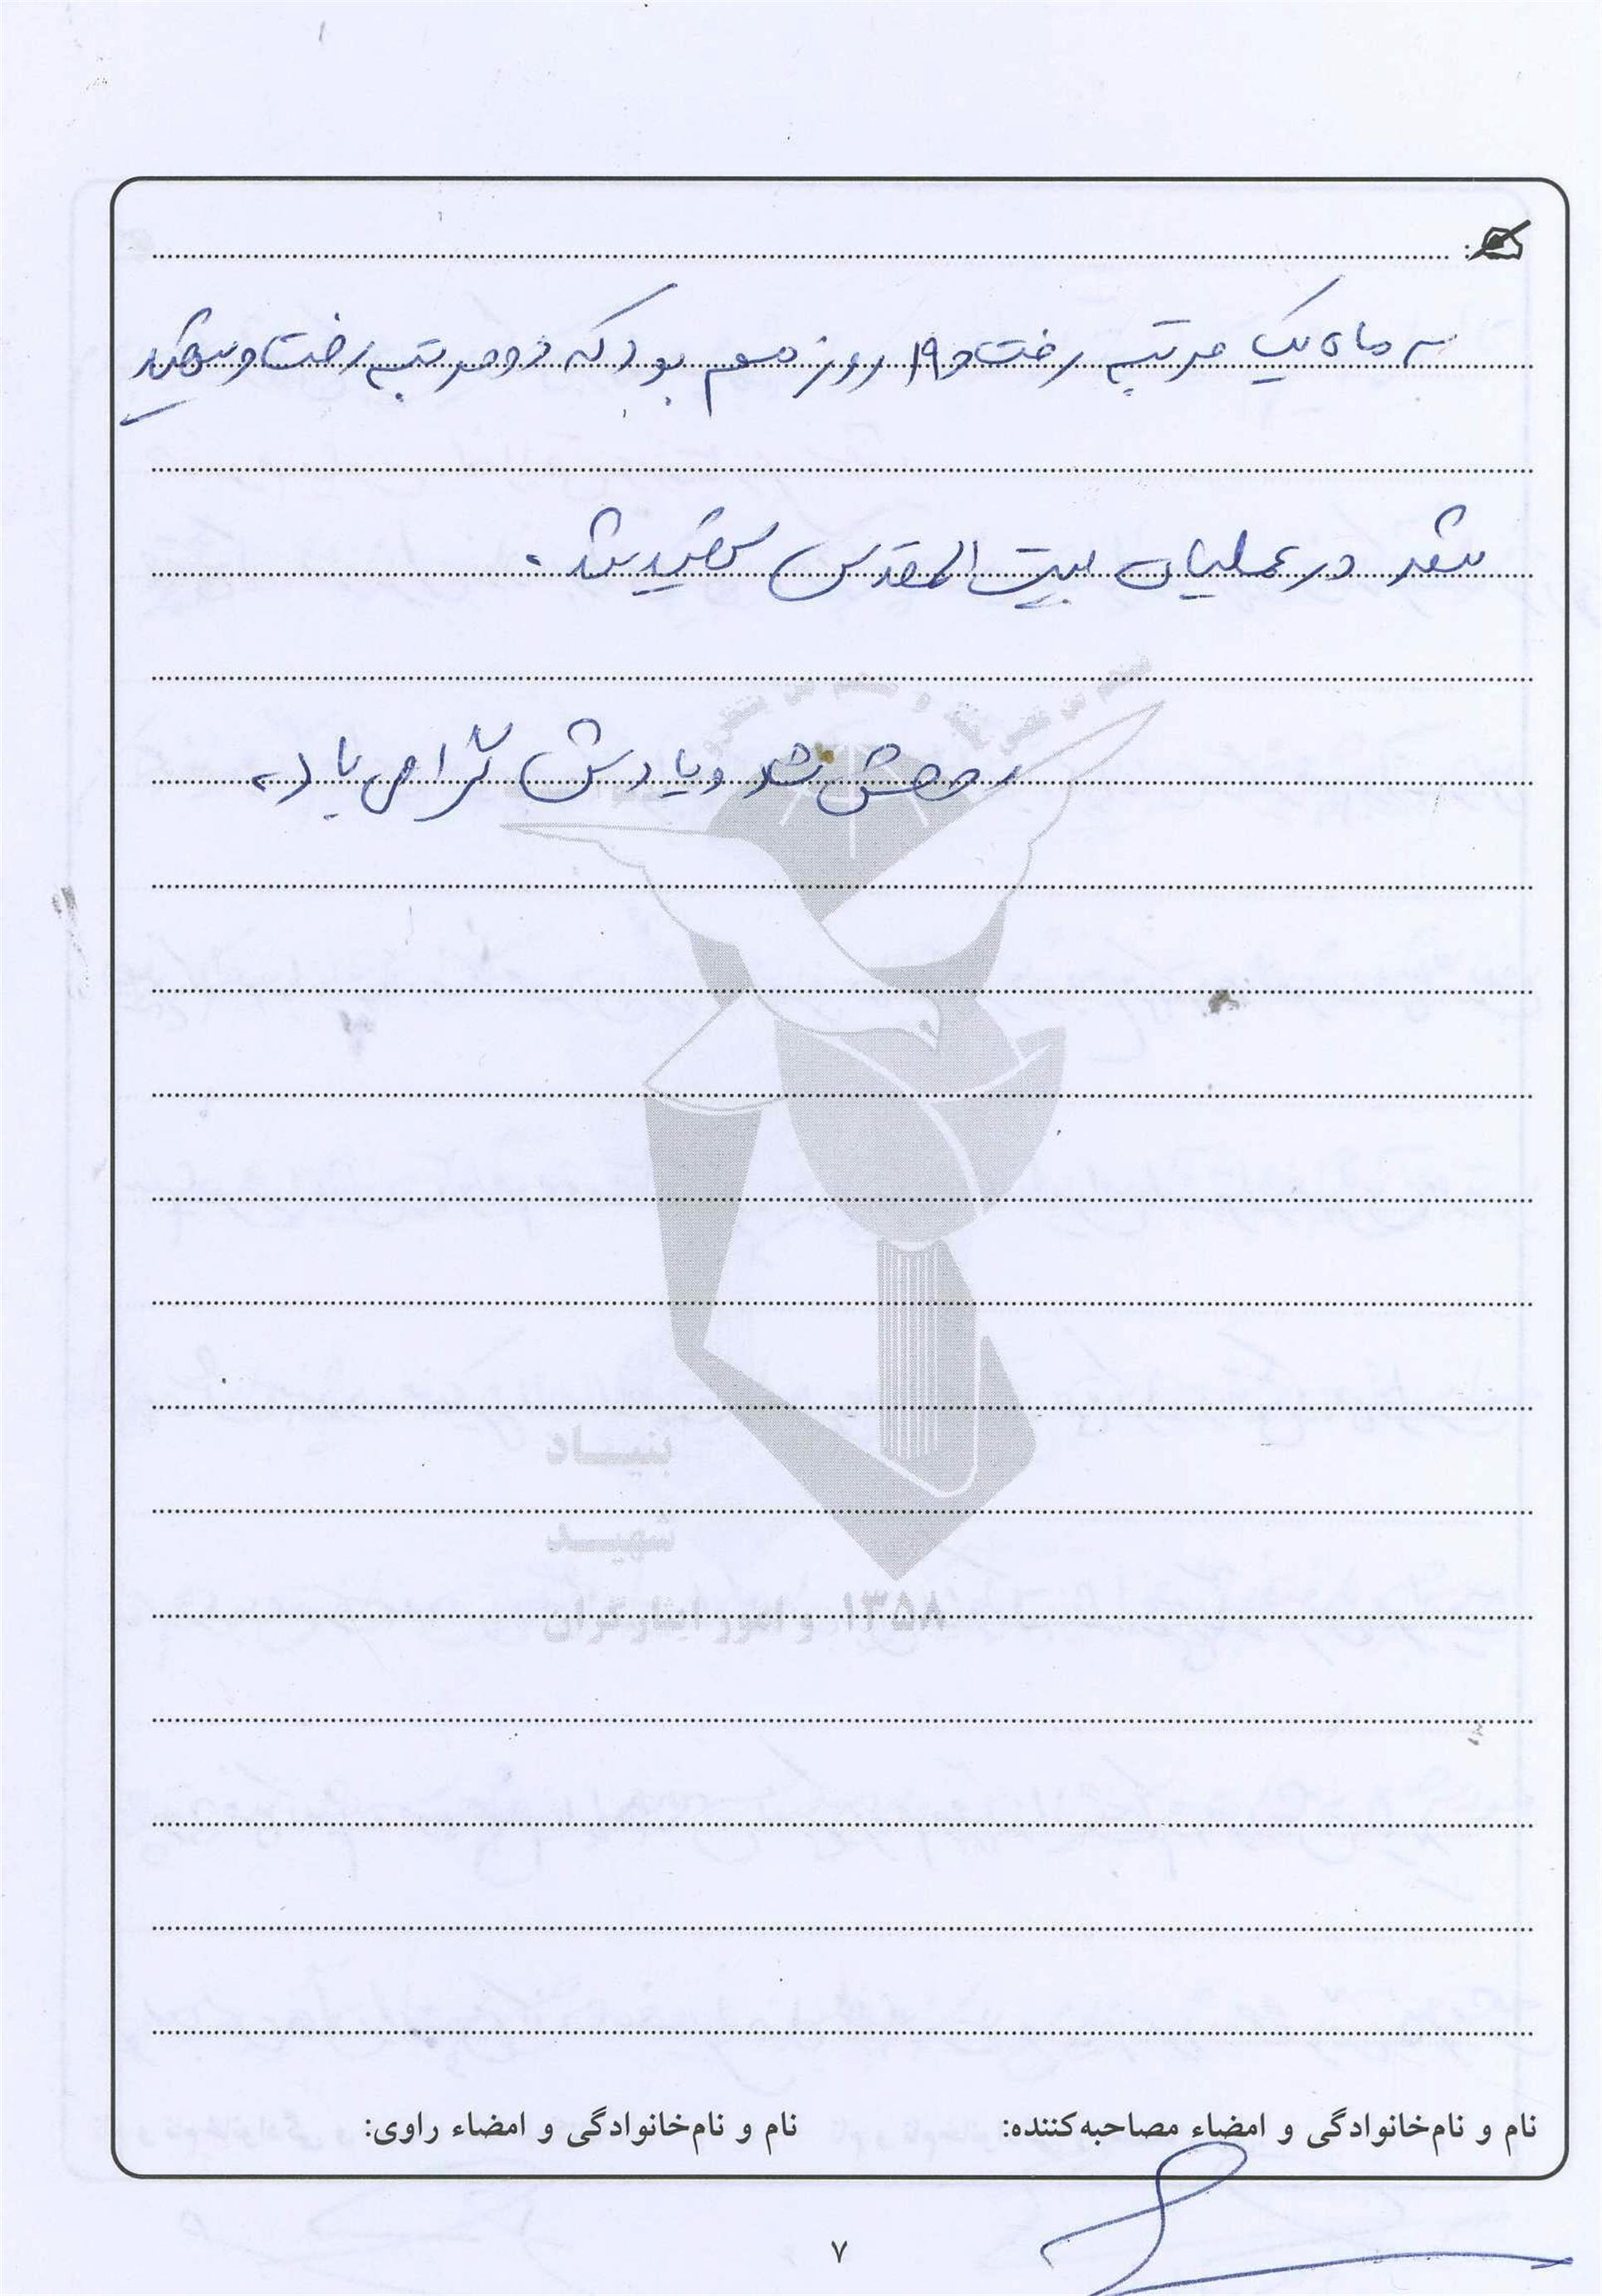 سه ماه یک مرتبه رفت و ۱۹ روز دوم بود که دو مرتبه رفت و شهید
شد در عملیات بیت المقدس شهید شد.
روحش شاد و یادش گرامی باد
بنیاد
شهید
و امور ایثارگران ۱۳۵۸
نام و نام‌خانوادگی و امضاء مصاحبه‌کننده: نام و نام‌خانوادگی و امضاء راوی:
۷